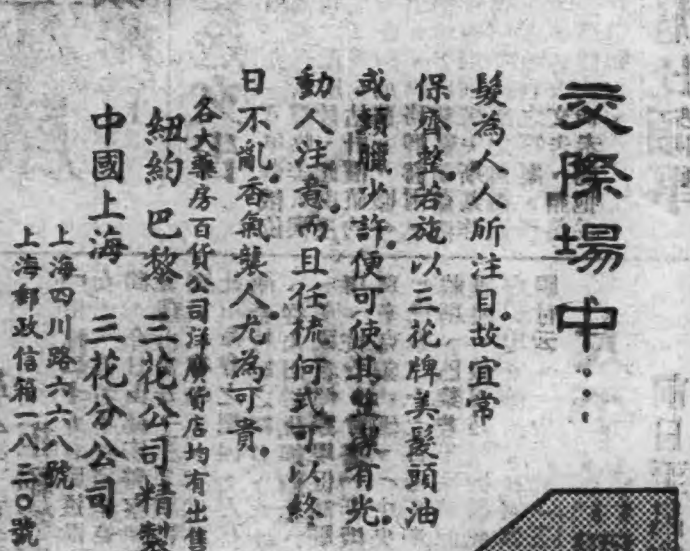 交際場中…
髮為人人所注目。故宜常
保齊整。若施以三花牌美髮頭油
或類臘少許。便可使其整潔有光。
動人注意。而且任梳何式。可以終
日不亂。香氣襲人。尤為可貴。
各大藥房百貨公司洋廣貨店均有出售
紐約 巴黎 三花公司精製
中國上海 三花分公司
上海四川路六六八號
上海郵政信箱一八三〇號